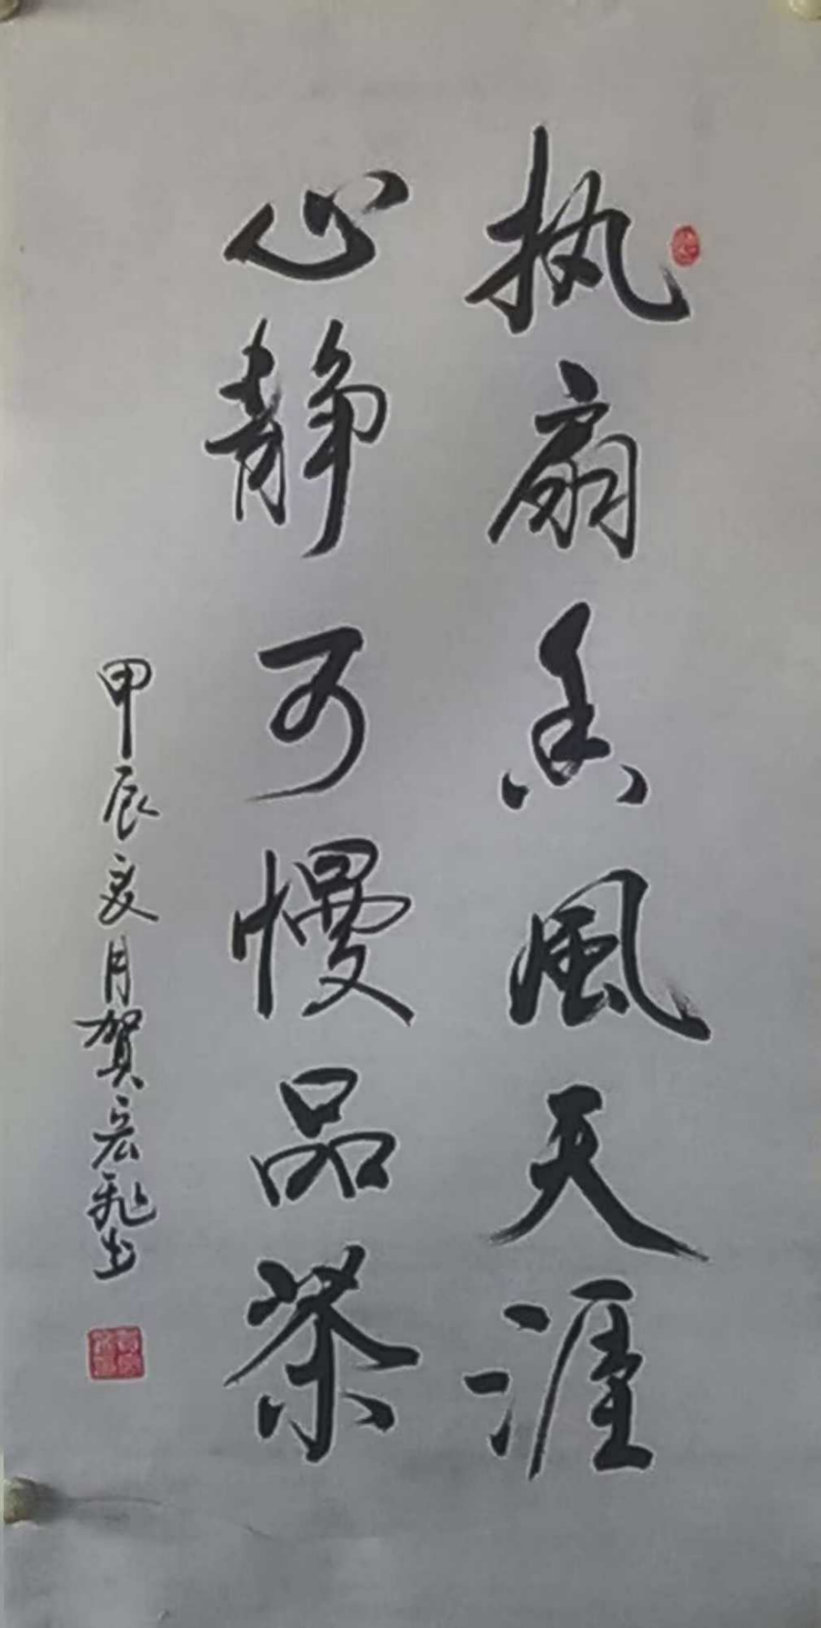 执扇風天涯
心静可慢品茶
甲辰夏月賀宏书